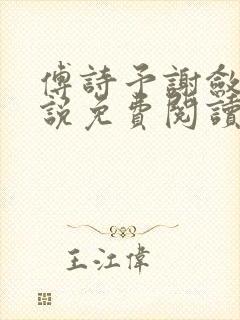 傅詩予謝斂
說免費閱讀
王江偉